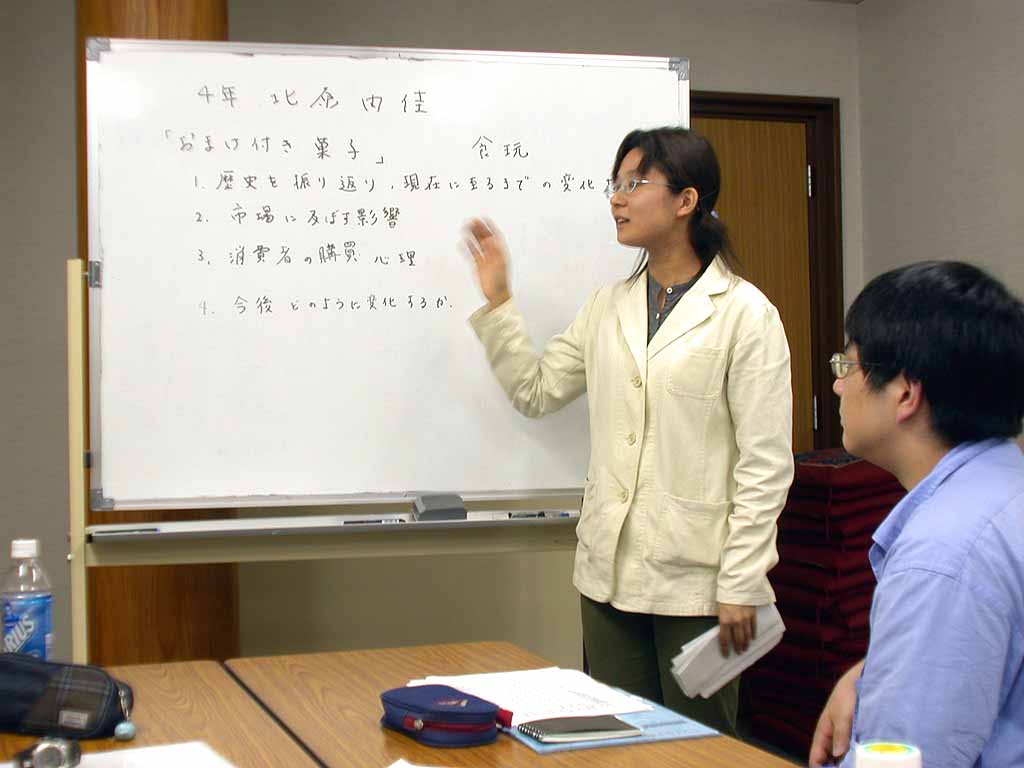 4年 北原内佳
「おまけ付き菓子」 食玩
1. 歴史を振り返り、現在に至るまでの変化
2. 市場に及ぼす影響
3. 消費者の購買心理
4. 今後どのように変化するか.
RIUS